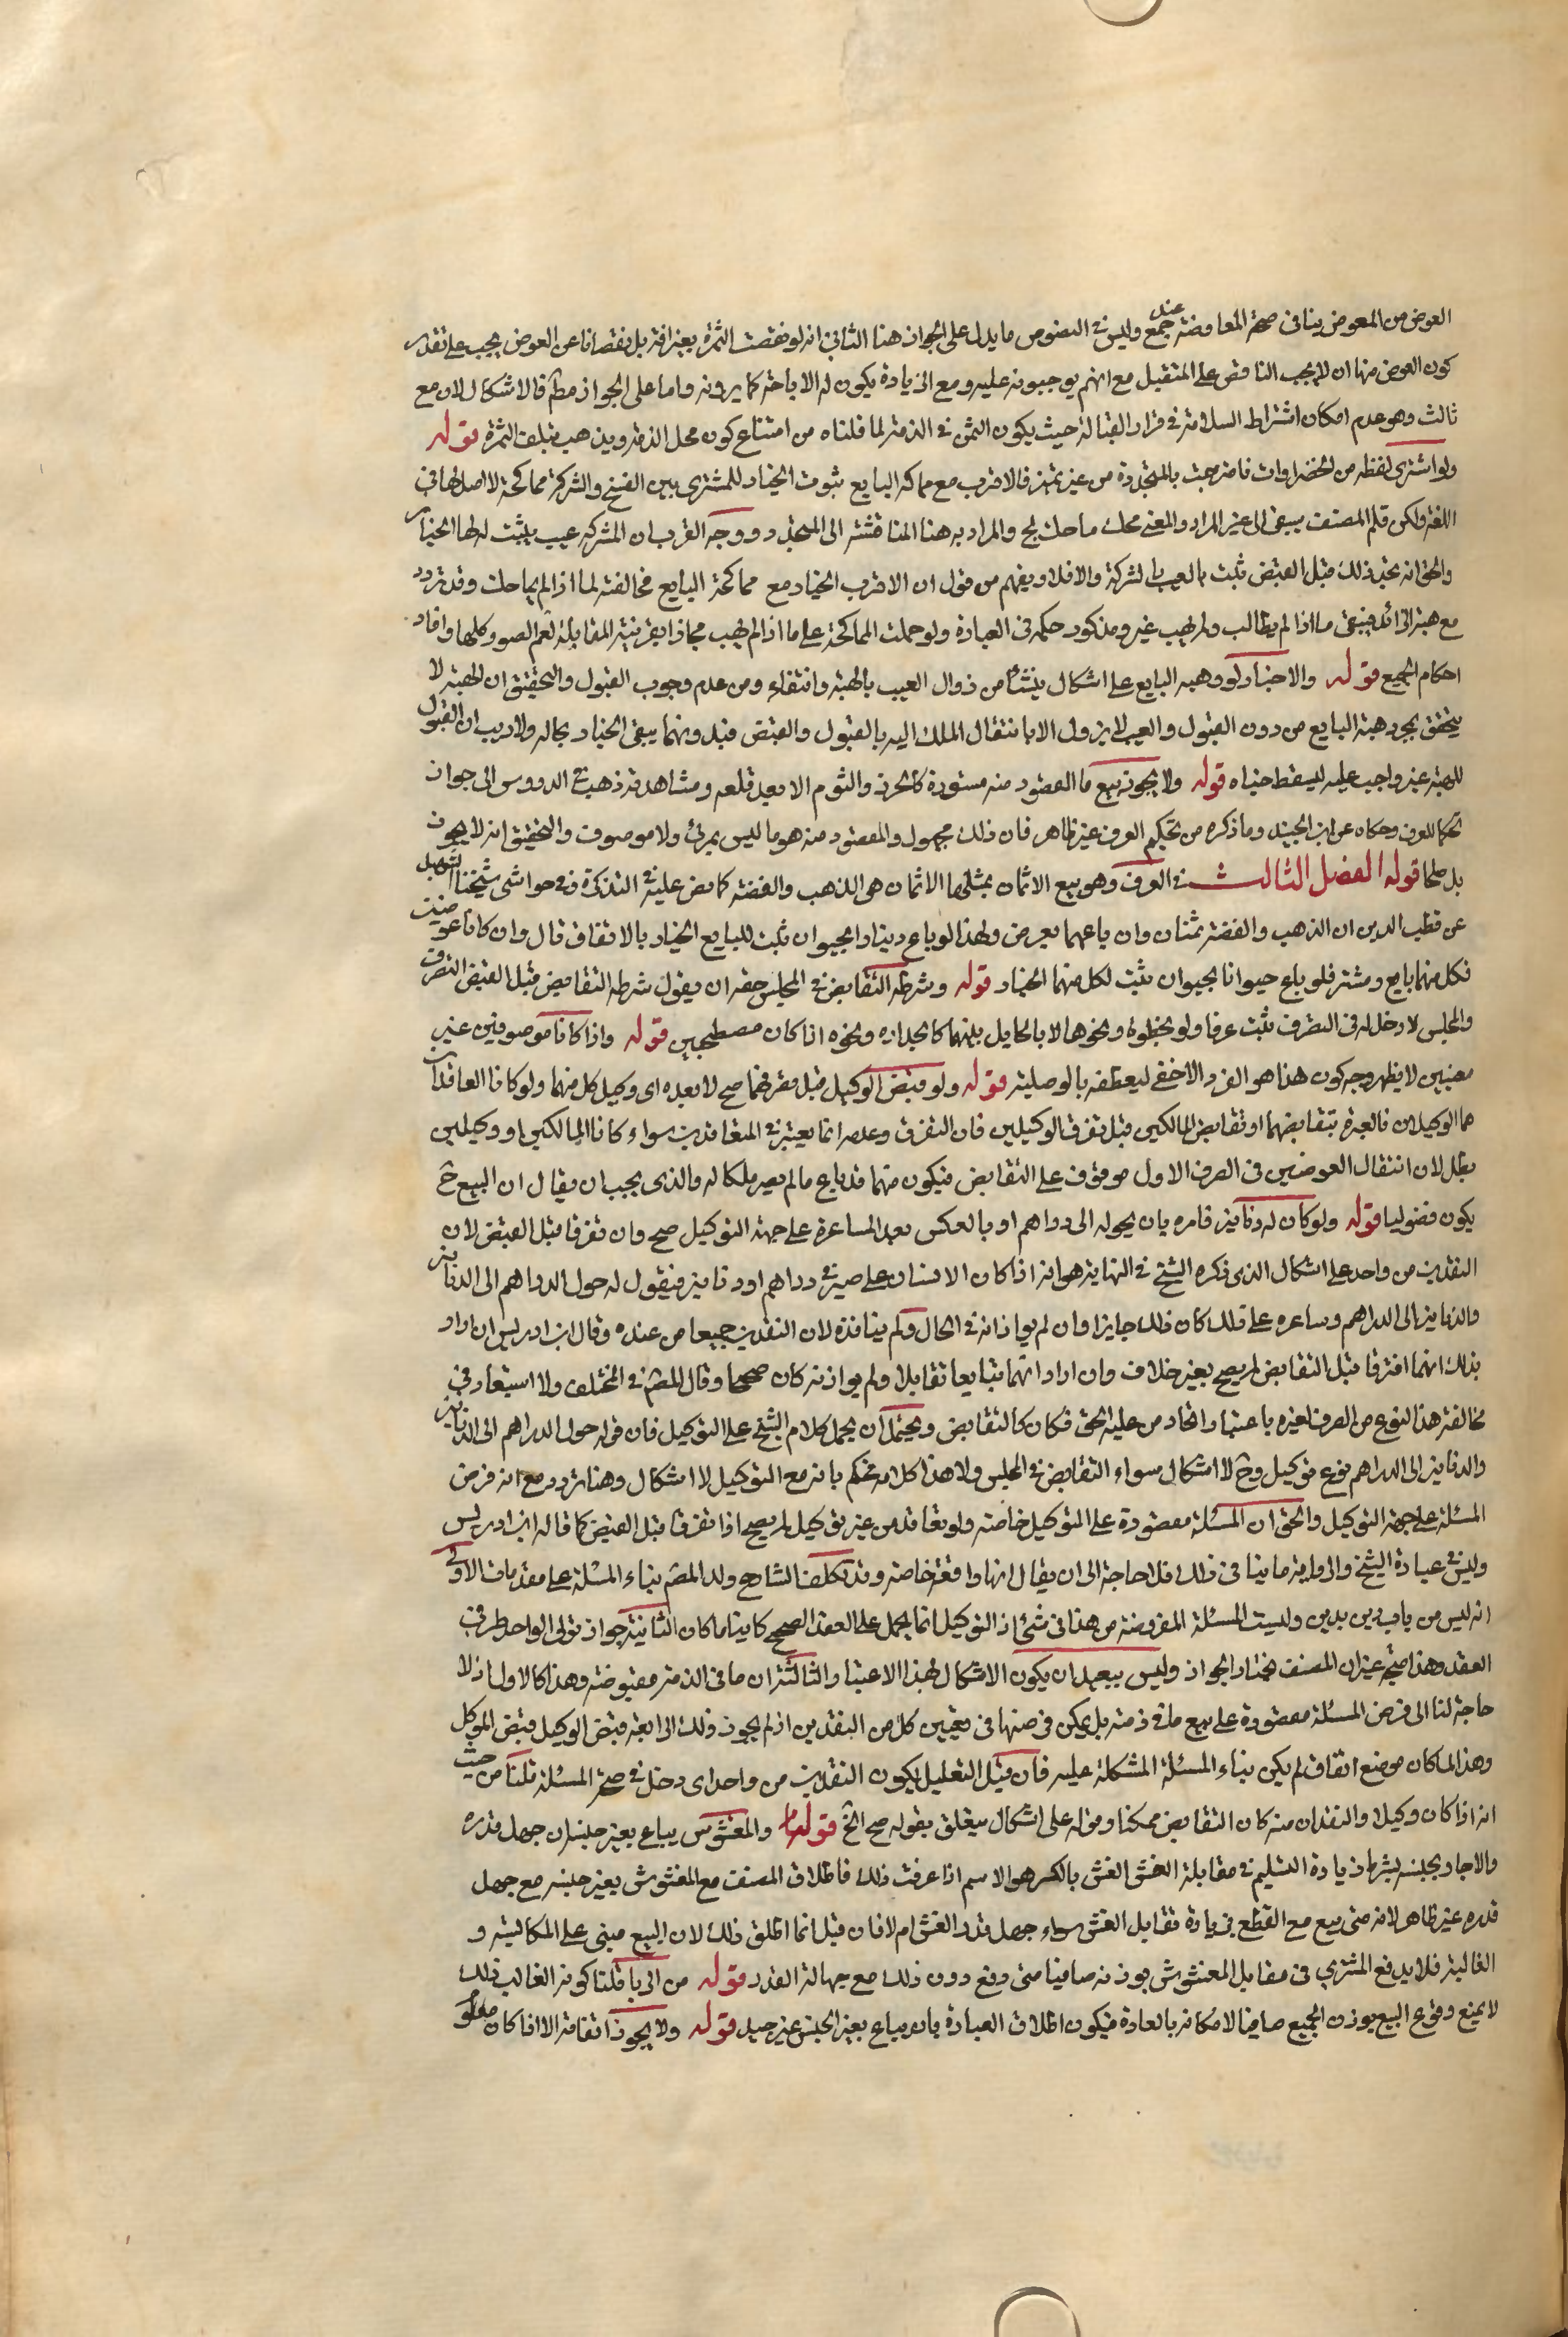 العوض من المعوض ينافى صحة المعاوضة عند جمع وليس فى النصوص ما يدل على الجواز هنا الثانى انه لو نقصت الثمرة بغير افة بل نقصانا عن العوض يجب على تقدير
كون العوض منها ان لا يجب الناقص على المتقبل مع انهم يوجبونه عليه ومع الزيادة يكون له الاباحة كما يرونه واما على الجواز مطم فالاشكال لازم مع
ثالث وهو عدم امكان اشتراط السلامة فى قرار القبالة حيث يكون الثمن فى الذمة لما قلناه من امتناع كون محل الذمة ويذهب بتلف الثمرة قوله
ولو اشترى لقطة من الخضراوات فامتزجت بالمتجددة من غير تميز فالاقرب مع مماكحة البايع ثبوت الخيار للمشترى بين الفسخ والشركة مماكحة لا اصل لها فى
اللغة ولكن قلم المصنف سبق الى غير المراد والمعنى محك ماحك لج والمراد به هنا المناقشة الى المتجدد ووجه القرب ان الشركة عيب يثبت لها الخيار
والحق انه بحيث ذلك قبل القبض ثبت بالعيب بالشركة والا فلا ويفهم من قول ان الاقرب الخيار مع مماكحة البايع مخالفته لما اذا لم يماحك وقد تردد
مع هبة الزائد فيبقى ما اذا لم يطالب ولم يهب غير مذكور حكمه فى العبارة ولو حملت المماكحة على ما اذا لم يهب مجازا بقرينة المقابلة لعم الصور كلها وافاد
احكام الجميع قوله ولا خيار لو وهبه البايع على اشكال ينشأ من زوال العيب بالهبة وانتفاء ومن عدم وجوب القبول والتحقيق ان الهبة لا
يتحقق بمجرد هبة البايع من دون القبول والعيب لا يزول الا بانتقال الملك اليه بالقبول والقبض فبدونهما يبقى الخيار بحاله ولا ريب ان القبول
للهبة غير واجب عليه ليسقط خياره قوله ولا يجوز بيع ما المقصود منه مستورة كالجزر والثوم الا بعد قلعه ومشاهدته ذهب فى الدروس الى جواز
تحكما للعرف وحكاه عن ابن الجنيد وما ذكره من تحكيم العرف غير ظاهر فان ذلك مجهول والمقصود منه هو ما ليس بمرئ ولا موصوف والتحقيق انه لا يجوز
بل صلحا قوله الفصل الثالث فى الصرف وهو بيع الاثمان بمثلها الاثمان هى الذهب والفضة كما نص عليه فى التذكرة وفى حواشى شيخنا الشهيد
عن قطب الدين ان الذهب والفضة ثمنان وان باعهما بعرض ولهذا لو باع دينارا بحيوان ثبت للبايع الخيار بالاتفاق قال وان كانا عوضين
فكل منهما بايع ومشتر فلو باع حيوانا بحيوان ثبت لكل منهما الخيار قوله وشرطه التقابض فى المجلس حقه ان يقول شرطه التقابض قبل القبض التفرق
والمجلس لا دخل له فى التفرق يثبت عرفا ولو بخطوة ونحوها لا بالحايل بينهما كالجدار ونحوه اذا كان مصطحبين قوله واذا كانا موصوفين غير
معينين لا يظهر وجه كون هذا هو الفرد الاخفى ليعطفه بالوصلية قوله ولو قبض الوكيل قبل تفرقهما صح لا بعده اى وكيل كل منهما ولو كانا العاقدان
هما الوكيلان فالعبرة بتقابضهما او تقابض المالكين قبل تفرق الوكيلين فان التفرق وعدمه انما يعتبر فى المتعاقدين سواء كانا المالكين او وكيلين
بطل لان انتقال العوضين فى الصرف الاول موقوف على التقابض فيكون منهما قد باع ما لم يصر ملكا له والذى يجب ان يقال ان البيع ح
يكون فضوليا قوله ولو كان له دنانير فامره بان يحوله الى دراهم او بالعكس بعد المساعرة على جهة التوكيل صح وان تفرقا قبل القبض لان
النقدين من واحد على اشكال الذى ذكره الشيخ فى النهاية هو انه اذا كان لانسان على صيرفى دراهم او دنانير فيقول له حول الدراهم الى الدنانير
والدنانير الى الدراهم وساعره على ذلك كان ذلك جايزا وان لم يوازنه فى الحال ولم يناقده لان النقدين جميعا من عنده وقال ابن ادريس ان اراد
بذلك انهما افترقا قبل التقابض لم يصح بغير خلاف وان ارادا انهما تبايعا تقابلا ولم يوازنه كان صحيحا وقال المصم فى المختلف ولا استبعاد فى
مخالفة هذا النوع من الصرف لغيره باعتبار اتحاد من عليه الحق فكان كالتقابض ويحتمل ان يحمل كلام الشيخ على التوكيل فان قوله حول الدراهم الى الدنانير
والدنانير الى الدراهم نوع توكيل وح لا اشكال سواء التقابض فى المجلس ولا هذا كلامه محكم بانه مع التوكيل لا اشكال وهنا تردد مع انه فرض
المسئلة على جهة التوكيل والحق ان المسئلة مقصورة على التوكيل خاصة ولو تعاقد من غير توكيل لم يصح اذا تفرقا قبل القبض كما قاله ابن ادريس
وليس فى عبارة الشيخ والرواية ما ينافى ذلك فلا حاجة الى ان يقال انها واقعة خاصة وقد تكلف الشارح ولد المصم بناء المسئلة على مقدمات الاولى
انه ليس من باب دين بدين وليست المسئلة المفروضة من هذا فى شئ اذ التوكيل انما يحمل على العقد الصحيح كاينا ما كان الثانية جواز تولى الواحد طرفى
العقد وهذا صحيح غير ان المصنف مختار الجواز وليس ببعيد ان يكون الاشكال لهذا الاعتبار والثالثة ان ما فى الذمة مقبوضة وهذا كالاول اذ لا
حاجة لنا الى فرض المسئلة مقصورة على بيع ما فى ذمته بل يمكن فرضها فى تعيين كل من النقدين اذ لم يجوز ذلك الرابعة قبض الوكيل قبض الموكل
وهذا لما كان موضع اتفاق لم يكن بناء المسئلة المشكلة عليه فان قيل التعليل بكون النقدين من واحد اى دخل فى صحة المسئلة قلنا من حيث
انه اذا كان وكيلا والنقدان منه كان التقابض ممكنا وقوله على اشكال يتعلق بقوله صح الخ قوله والمغشوش يباع بغير جنسه ان جهل قدره
والا جاز بجنسه بشرط زيادة السليم فى مقابلة الغش الغش بالكسر هو الاسم اذا عرفت ذلك فاطلاق المصنف مع المغشوش بغير جنسه مع جهل
قدره غير ظاهر لانه متى بيع مع القطع بزيادة تقابل الغش سواء جهل قدر الغش ام لا فان قيل انما اطلق ذلك لان البيع مبنى على المكايسة و
الغالبة فلا يدفع المشترى فى مقابل المغشوش بوزنه صافيا متى دفع دون ذلك مع جهالة القدر قوله من الربا قلنا كونه الغالب ذلك
لا يمنع وقوع البيع بوزن الجميع صافيا لامكانه بالعادة فيكون اطلاق العبارة بان يباع بغير الجنس غير جيد قوله ولا يجوز انفاقه الا اذا كان معلو